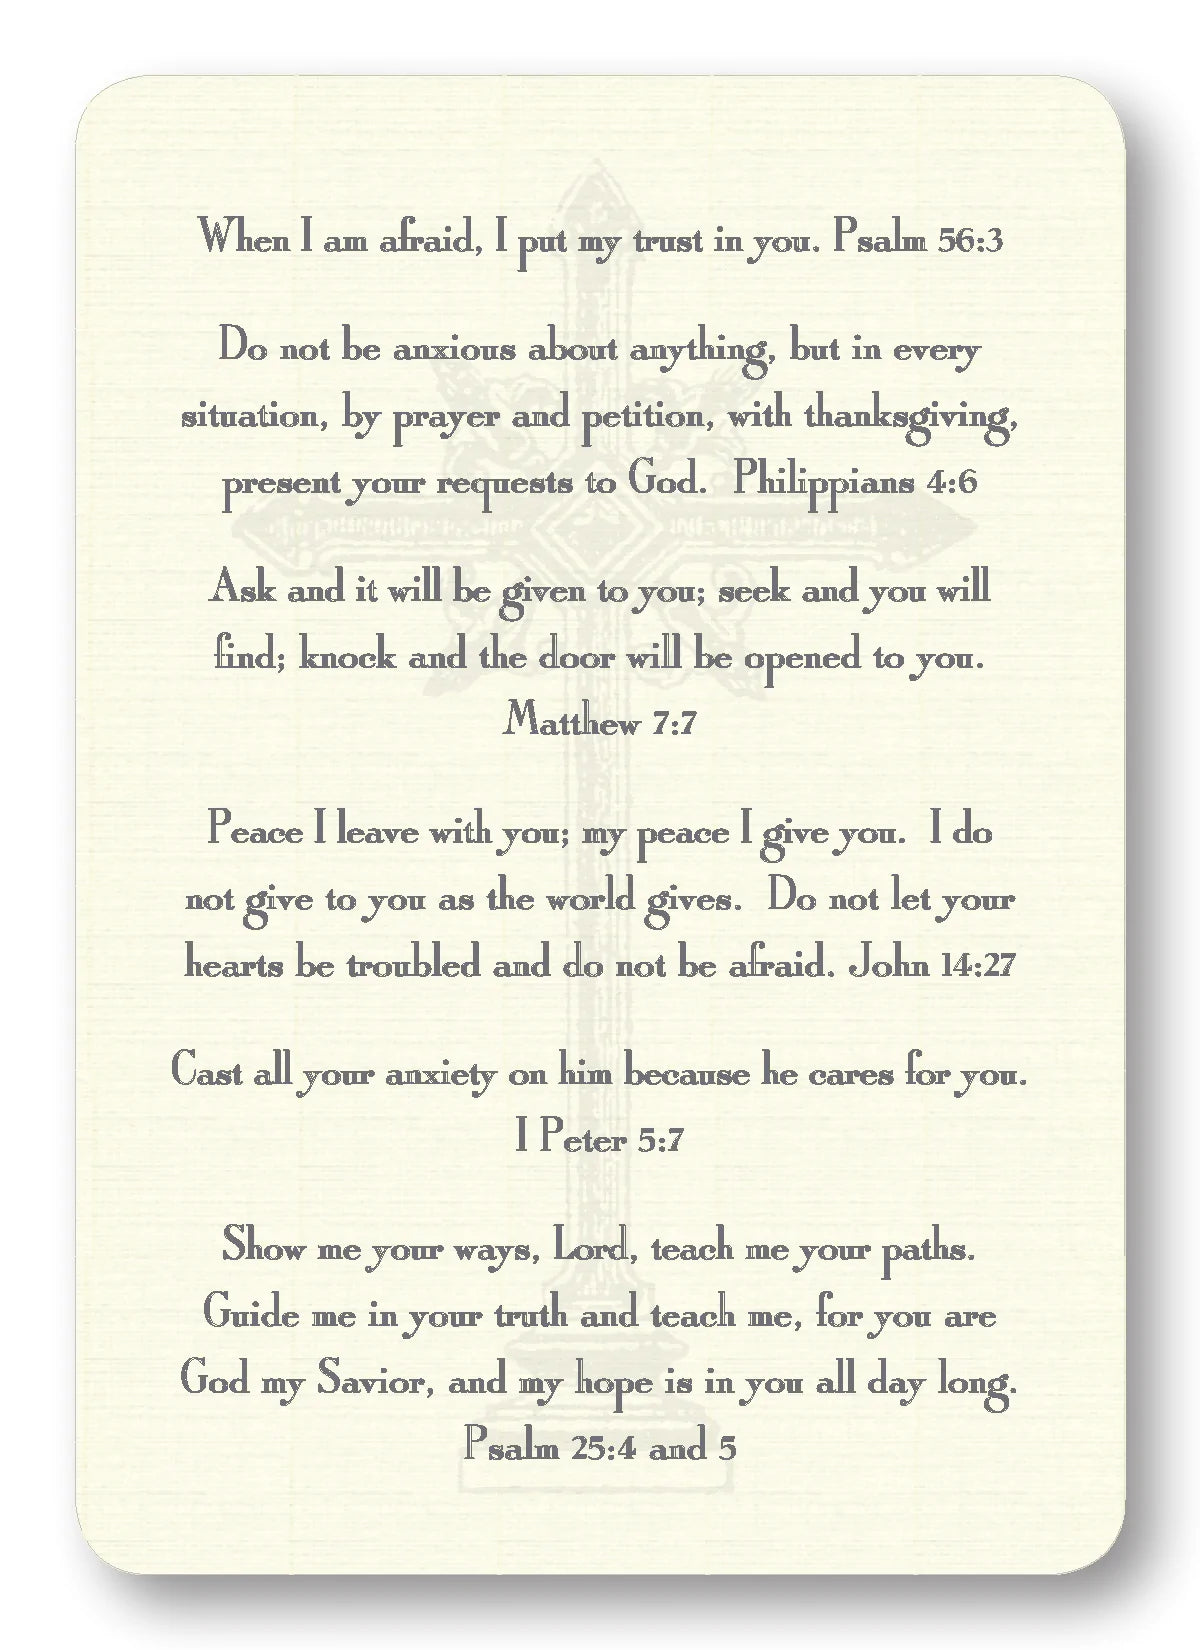 When I am afraid, I put my trust in you. Psalm 56:3
Do not be anxious about anything, but in every
situation, by prayer and petition, with thanksgiving,
present your requests to God.  Philippians 4:6
Ask and it will be given to you; seek and you will
find; knock and the door will be opened to you.
Matthew 7:7
Peace I leave with you; my peace I give you.  I do
not give to you as the world gives.  Do not let your
hearts be troubled and do not be afraid. John 14:27
Cast all your anxiety on him because he cares for you.
I Peter 5:7
Show me your ways, Lord, teach me your paths.
Guide me in your truth and teach me, for you are
God my Savior, and my hope is in you all day long.
Psalm 25:4 and 5